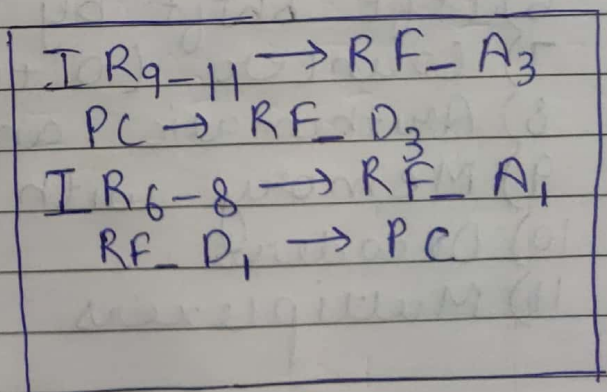 IR9-11 → RF_A3
PC → RF_D3
IR6-8 → RF_A1
RF_D1 → PC